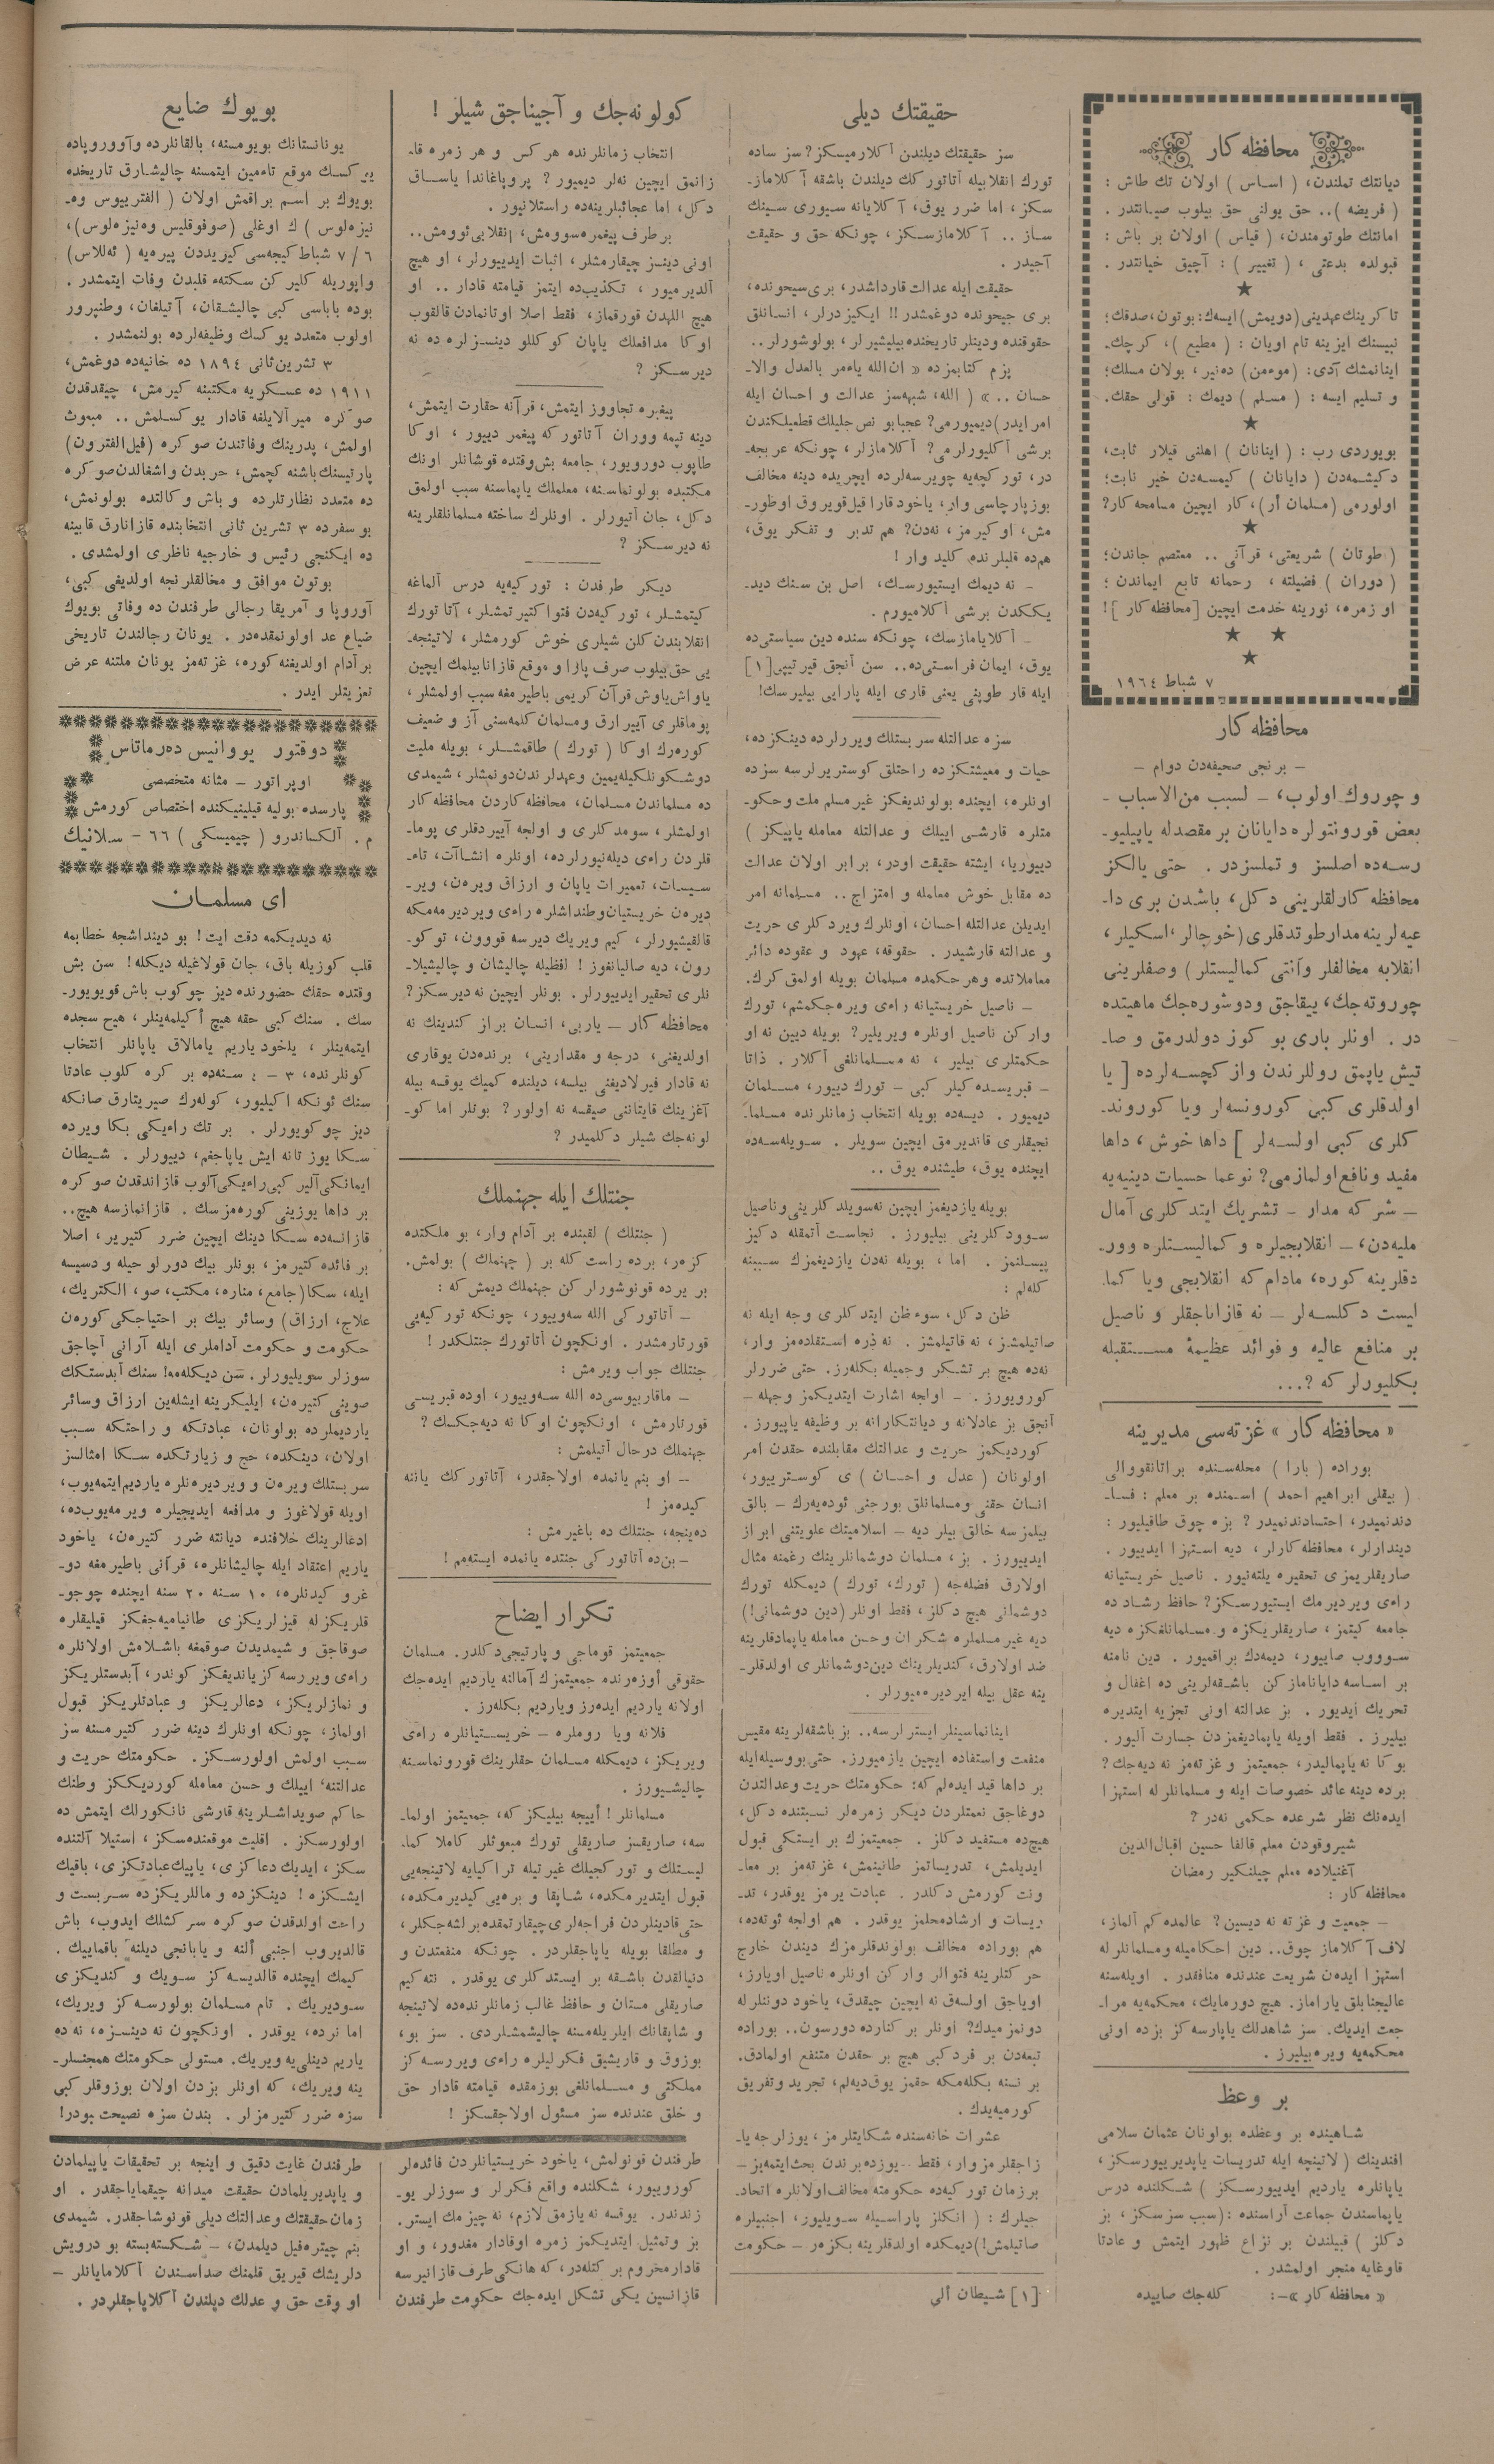 محافظه كار
ديانتك تملندن، ( اساس ) اولان تك طاش :
( فريضه ).. حق يولنى حق بيلوب صيانتدر .
امانتك طوتومندن، ( قياس ) اولان بر باش :
قبولده بدعتى ، ( تغيير ) : آچيق خيانتدر .
★
تاكرينك عهدينى (دويمش) ايسهك: بوتون، صدقك؛
نبيسنك ايزينه تام اويان : ( مطيع )، كرچك.
اينانمشك آدى: (موءمن) دهنير، بولان مسلك؛
و تسليم ايسه : ( مسلم ) ديمك : قولى حقك.
★
بويوردى رب : ( اينانان ) اهلنى قيلار ثابت،
دكيشمهدن ( دايانان ) كيمسهدن خير نابت؛
اولورمى (مسلمان أر)، كار ايچين مسامحه كار؟
★
( طوتان ) شريعتى، قرآنى .. معتصم جاندن؛
( دوران ) فضيلته ، رحمانه تابع ايماندن ؛
او زمره، نورينه خدمت ايچين [محافظه كار ]!
★ ★
★
٧ شباط ١٩٦٤
محافظه كار
– برنجى صحيفهدن دوام –
و چوروك اولوب، – لسبب من الاسباب –
بعض قورونتولره دايانان بر مقصدله ياپيليو-
رسهده اصلسز و تملسزدر . حتى يالكز
محافظه كارلقلرينى دكل، باشدن برى دا-
عيهلرينه مدار طوتدقلرى (خوجالر، اسكيلر،
انقلابه مخالفلر و آنتى كماليستلر) وصفلرينى
چوروتهجك، ييقاجق و دوشورهجك ماهيتده
در . اونلر بارى بو كوز دولدرمق و صا-
تيش ياپمق روللرندن واز كچسهلرده [ يا
اولدقلرى كبى كورونسهلر ويا كوروند-
كلرى كبى اولسهلر ] داها خوش ، داها
مفيد و نافع اولمازمى؟ نوعما حسيات دينيهيه
– شركه مدار – تشريك ايتدكلرى آمال
مليهدن، – انقلابجيلره و كماليستلره وور-
دقلرينه كوره، مادام كه انقلابجى ويا كما.
ليست دكلسهلر – نه قازاناجقلر و ناصيل
بر منافع عاليه و فوائد عظيمۀ مستقبله
بكليورلر كه ؟...
« محافظه كار » غزتهسى مديرينه
بوراده ( بارا ) محلهسنده براتانقووالى
( بيقلى ابراهيم احمد ) اسمنده بر معلم : فسا-
دندنميدر، احتسادندنميدر ؟ بزه چوق طاقيليور :
دیندارلر، محافظه كارلر، ديه استهزا ايدييور .
صاريقلريمزى تحقيره يلتهنيور . ناصيل خريستيانه
راءى ويرديرمك ايستيورسكز؟ حافظ رشاد ده
جامعه كيتمز، صاريقلريكزه و مسلمانلغكزه ديه
سوووب صاييور، ديمهدك براقميور . دين نامنه
بر اساسه داياناماز كن باشقهلرينى ده اغفال و
تحريك ايديور . بز عدالته اونى تجزيه ايتديره
بيليرز . فقط اويله ياپماديغمزدن جسارت آليور .
بوكا نه ياپماليدر، جمعيتمز و غزتهمز نه ديهجك ؟
برده دينه عائد خصوصات ايله و مسلمانلرله استهزا
ايدهنك نظر شرعده حكمى نهدر ؟
شيروقودن معلم قالفا حسين اقبال الدين
آغنيلاده معلم چيلنكير رمضان
محافظه كار :
– جمعيت و غزته نه ديسين؟ عالمده كم آلماز،
لاف آكلاماز چوق.. دين احكاميله و مسلمانلرله
استهزا ايدهن شريعت عندنده منافقدر . اويلهسنه
عاليجنابلق ياراماز. هيچ دورمايك، محكمهيه مرا-
جعت ايديك. سز شاهدلك ياپارسه كز بزده اونى
محكمهيه ويره بيليرز .
بر وعظ
شاهينده بر وعظده بولونان عثمان سلامى
افندينك ( لاتينجه ايله تدريسات ياپديرييورسكز،
ياپانلره يارديم ايدييورسكز ) شكلنده درس
ياپماسندن جماعت آراسنده :(سبب سزسكز، بز
دكلز ) قبيلندن بر نزاع ظهور ايتمش و عادتا
قاوغايه منجر اولمشدر .
« محافظه كار »–: كلهجك صاييده
حقيقتك ديلى
سز حقيقتك ديلندن آكلارميسكز؟ سز ساده
تورك انقلابيله آتاتورك ديلندن باشقه آكلاماز-
سكز، اما ضرر يوق، آكلايانه سيورى سينك
ساز .. آكلامازسكز، چونكه حق و حقيقت
آجيدر .
حقيقت ايله عدالت قارداشدر، برى سيحونده،
برى جيحونده دوغمشدر!! ايكيزدرلر، انسانلق
حقوقنده و دينلر تاريخنده بيليشيرلر، بولوشورلر..
بزم كتابمزده « ان الله ياءمر بالعدل والا-
حسان .. » ( الله، شبههسز عدالت و احسان ايله
امر ايدر) ديميورمى؟ عجبا بو نص جليلك قطعيلكندن
برشى آكليورلرمى؟ آكلامازلر، چونكه عربجه-
در، توركچهيه چويرسهلرده ايچريده دينه مخالف
بوز پارچاسى وار، ياخود قارا قيل قويروق اوطور-
مش، او كيرمز، نهدن؟ هم تدبر و تفكر يوق،
همده قلبلرنده كليد وار !
– نه ديمك ايستيورسك، اصل بن سنك ديد-
يككدن برشى آكلاميورم .
– آكلايامازسك، چونكه سنده دين سياستىده
يوق، ايمان فراستىده.. سن آنجق قيرتيپى[١]
ايله قار طوپنى يعنى قارى ايله پارايى بيليرسك!
سزه عدالتله سربستلك ويررلرده دينكزده،
حيات و معيشتكزده راحتلق كوستريرلرسه سزده
اونلره، ايچنده بولونديغكز غير مسلم ملت و حكو-
متلره قارشى ايبلك و عدالتله معامله ياپيكز )
دييوريا، ايشته حقيقت اودر، برابر اولان عدالت
ده مقابل خوش معامله و امتزاج .. مسلمانه امر
ايديلن عدالتله احسان، اونلرك ويردكلرى حريت
و عدالته قارشيدر . حقوقه، عهود و عقوده دائر
معاملاتده و هر حكمده مسلمان بويله اولمق كرك.
– ناصيل خريستيانه راءى ويره جكمشم، تورك
واركن ناصيل اونلره ويريلير؟ بويله ديين نه او
حكمتلرى بيلير ، نه مسلمانلغى آكلار . ذاتا
– قبريسده كيلر كبى – تورك دييور، مسلمان
ديميور . ديسهده بويله انتخاب زمانلرنده مسلما-
نجيقلرى قانديرمق ايچين سويلر . سويلهسهده
ايچنده يوق، طيشنده يوق ..
بويله يازديغمز ايچين نهسويلدكلرينى و ناصيل
سوودكلرينى بيليورز . نجاست آتمقله دكيز
پيسلنمز . اما ، بويله نهدن يازديغمزك سببنه
كلهلم :
ظن دكل، سوء ظن ايتدكلرى وجه ايله نه
صاتيلمشز ، نه قاتيلمشز . نه ذره استفادهمز وار،
نهده هيچ بر تشكر و جميله بكلهرز. حتى ضررلر
كورويورز . – اولجه اشارت ايتديكمز وجهله –
آنجق بز عادلانه و ديانتكارانه بر وظيفه ياپيورز .
كورديكمز حريت و عدالتك مقابلنده حقدن امر
اولونان ( عدل و احسان ) ى كوستريبور،
انسان حقنى و مسلمانلق بورجنى ئودهيهرك – بالق
بيلمزسه خالق بيلر ديه – اسلاميتك علويتنى ابراز
ايدييورز . بز، مسلمان دوشمانلرينك رغمنه مثال
اولارق فضلهجه ( تورك، تورك ) ديمكله تورك
دوشمانى هيچ دكلز، فقط اونلر (دين دوشمانى!)
ديه غير مسلملره شكران و حسن معامله ياپمادقلرينه
ضد اولارق، كنديلرينك دين دوشمانلرى اولدقلر-
ينه عقل بيله ايرديرهميورلر .
اينانماسينلر ايسترلرسه.. بز باشقهلرينه مقيس
منفعت و استفاده ايچين يازميورز. حتى بو وسيلهايله
بر داها قيد ايدهلم كه؛ حكومتك حريت و عدالتدن
دوغاجق نعمتلردن ديكر زمرهلر نسبتنده دكل،
هيچده مستفيد دكلز . جمعيتمزك بر ايستكى قبول
ايديلمش، تدريساتمز طانينمش، غزتهمز بر معا-
ونت كورمش دكلدر . عبادت يرمز يوقدر، تد-
ريسات و ارشاد محلمز يوقدر . هم اولجه ئوتهده،
هم بوراده مخالف بولوندقلرمزك ديندن خارج
حركتلرينه فتوالر واركن اونلره ناصيل اويارز،
اوياجق اولسهق نه ايچين چيقدق، ياخود دوننلرله
دونمز ميدك؟ اونلر بر كنارده دورسون.. بوراده
تبعهدن بر فرد كبى هيچ بر حقدن متنفع اولمادق.
بر نسنه بكلهمكه حقمز يوق ديهلم، تجريد و تفريق
كورميهيدك .
عشرات خانهسنده شكايتلرمز، يوزلرجه يا-
زاجقلرمز وار، فقط ..يوزده برندن بحث ايتمهيز –
برزمان توركيهده حكومته مخالف اولانلره اتحاد-
جيلرك : ( انكلز پاراسيله سويليور، اجنبيلره
صاتيلمش!) ديمكده اولدقلرينه بكزهر – حكومت
[١] شيطان ألي
كولونهجك و آجيناجق شيلر !
انتخاب زمانلرنده هركس و هر زمره قا-
زانمق ايچين نهلر ديميور؟ پروپاغاندا ياساق
دكل، اما عجائبلرينهده راستلانيور .
بر طرف پيغمره سوومش، انقلابى ئوومش..
اونى دينسز چيقارمشلر، اثبات ايدييورلر، او هيچ
آلديرميور ، تكذيبده ايتمز قيامته قادار .. او
هيچ اللهدن قورقماز، فقط اصلا اوتانمادن قالقوب
اوكا مدافعلك ياپان كوكللو دينسزلره ده نه
ديرسكز ؟
پيغبره تجاووز ايتمش، قرآنه حقارت ايتمش،
دينه تپمه ووران آتاتوركه پيغمر دييور ، اوكا
طاپوب دورويور، جامعه بش وقتده قوشانلر اونك
مكتبده بولونماسنه، معلملك ياپماسنه سبب اولمق
دكل، جان آتيورلر . اونلرك ساخته مسلمانلقلرينه
نه ديرسكز ؟
ديكر طرفدن : توركيهيه درس آلماغه
كيتمشلر، توركيهدن فتوا كتيرتمشلر، آتا تورك
انقلابندن كلن شيلرى خوش كورمشلر، لاتينجه-
يى حق بيلوب صرف پارا و موقع قازانابيلمك ايچين
ياواش ياوش قرآن كريمى باطيرمغه سبب اولمشلر،
پوماقلرى آييرارق و مسلمان كلمهسنى آز و ضعيف
كورهرك اوكا ( تورك ) طاقمشلر، بويله مليت
دوشكونلكيله يمين و عهدلرندن دونمشلر، شيمدى
ده مسلماندن مسلمان، محافظه كاردن محافظه كار
اولمشلر، سومدكلرى و اولجه آييردقلرى پوما-
قلردن راءى ديلهنيورلرده، اونلره انشاآت، تاء-
سيسات، تعميرات ياپان و ارزاق ويرهن، وير-
ديرهن خريستيان وطنداشلره راءى ويرديرمهمكه
قالقيشيورلر، كيم ويريك ديرسه قووون، توكو-
رون، ديه صاليانغوز! لفظيله چاليشان و چاليشيلا-
نلرى تحقير ايدييورلر. بونلر ايچين نه ديرسكز؟
محافظه كار – ياربى، انسان براز كندينك نه
اولديغنى، درجه و مقدارينى، برندهدن يوقارى
نه قادار فيرلاديغنى بيلسه، ديلنده كميك يوقسه بيله
آغزينك قايتاننى صيقسه نه اولور؟ بونلر اما كو-
لونهجك شيلر دكلميدر ؟
جنتلك ايله جهنملك
( جنتلك ) لقبنده بر آدام وار، بو ملكتده
كزهر، برده راست كله بر ( جهنملك ) بولمش.
بر يرده قونوشورلر كن جهنملك ديمش كه :
– آتاتوركى الله سهوييور، چونكه توركيهيى
قورتارمشدر . اونكچون آتاتورك جنتلكدر !
جنتلك جواب ويرمش :
– ماقاريوسىده الله سهوييور، اوده قبريسى
قورتارمش ، اونكچون اوكا نه ديهجكسك ؟
جهنملك درحال آتيلمش :
– او بنم يانمده اولاجقدر، آتاتوركك ياننه
كيدهمز !
دهينجه، جنتلك ده باغيرمش :
– بنده آتاتوركى جنتده يانمده ايستهمم !
تكرار ايضاح
جمعيتمز قوماجى و پارتيجى دكلدر. مسلمان
حقوقى أوزهرنده جمعيتمزك آمالنه يارديم ايدهجك
اولانه يارديم ايدهرز و يارديم بكلهرز.
فلانه ويا روملره – خريستيانلره راءى
ويريكز، ديمكله مسلمان حقلرينك قورونماسنه
چاليشيورز .
مسلمانلر ! أييجه بيليكز كه، جمعيتمز اولما-
سه، صاريقسز صاريقلى تورك مبعوثلر كاملا كما-
ليستلك و توركجيلك غيرتيله تراكيايه لاتينجهيى
قبول ايتديرمكده، شاپقا و برهيى كيديرمكده،
حتى قادينلردن فراجهلرى چيقارتمقده برلشهجكلر،
و مطلقا بويله ياپاجقلردر . چونكه منفعتدن و
دنيالقدن باشقه بر ايستدكلرى يوقدر . نته كيم
صاريقلى مستان و حافظ غالب زمانلرندهده لاتينجه
و شاپقانك ايلريلهمسنه چاليشمشلردى . سز بو،
بوزوق و قاريشيق فكرليلره راءى ويررسه كز
مملكتى و مسلمانلغى بوزمقده قيامته قادار حق
و خلق عندنده سز مسئول اولاجقسكز !
طرفندن قونولمش، ياخود خريستيانلردن فائدهلر
كورويبور، شكلنده واقع فكرلر و سوزلر يو-
زندندر. يوقسه نه يازمق لازم، نه چيزمك ايستر.
بز و تمثيل ايتديكمز زمره اوقادار مغدور، و او
قادار محروم بر كتلهدر، كه هانكى طرف قازانيرسه
قازانسين يكى تشكل ايدهجك حكومت طرفندن
بويوك ضايع
يونانستانك بويومسنه، بالقانلرده و آووروپاده
يوكسك موقع تاءمين ايتمسنه چاليشارق تاريخده
بويوك بر اسم براقمش اولان ( الفتريبوس وه-
نيزهلوس ) ك اوغلى (صوفوقليس وهنيزهلوس)،
٦ / ٧ شباط كيجهسى كيريددن پيرهيه ( ئهللاس)
واپوريله كليركن سكتهء قلبدن وفات ايتمشدر .
بوده باباسى كبى چاليشقان، آتيلغان، وطنپرور
اولوب متعدد يوكسك وظيفهلرده بولنمشدر .
٣ تشرين ثانى ١٨٩٤ ده خانيهده دوغمش،
١٩١١ ده عسكريه مكتبنه كيرمش، چيقدقدن
صوكره ميرآلايلغه قادار يوكسلمش .. مبعوث
اولمش، پدرينك وفاتندن صوكره (فيل الفترون)
پارتيسنك باشنه كچمش، حربدن و اشغالدن صوكره
ده متعدد نظارتلرده و باش وكالتده بولونمش،
بو سفرده ٣ تشرين ثانى انتخابنده قازانارق قابينه
ده ايكنجى رئيس و خارجيه ناظرى اولمشدى .
بوتون موافق و مخالفلرنجه اولديغى كبى،
آوروپا و آمريقا رجالى طرفندن ده وفاتى بويوك
ضياع عد اولونمقدهدر . يونان رجالندن تاريخى
بر آدام اولديغنه كوره، غزتهمز يونان ملتنه عرض
تعزيتلر ايدر .
دوقتور يووانيس دهرماتاس
اوپراتور – مثانه متخصصى
پارسده بوليه قيلينيكنده اختصاص كورمش
م . آلكساندرو ( چيميسكى ) ٦٦ – سلانيك
اى مسلمان
نه ديديكمه دقت ايت! بو دينداشجه خطابمه
قلب كوزيله باق، جان قولاغيله ديكله! سن بش
وقتده حقك حضورنده ديز چوكوب باش قويويور-
سك . سنك كبى حقه هيچ أكيلمهينلر، هيچ سجده
ايتمهينلر ، ياخود ياريم يامالاق ياپانلر انتخاب
كونلرنده، ٣ – ٤ سنهده بر كره كلوب عادتا
سنك ئونكه اكيليور، كولهرك صيريتارق صانكه
ديز چوكويورلر . بر تك راءيكى بكا ويرده
سكا يوز تانه ايش ياپاجغم، دييورلر . شيطان
ايمانكى آلير كبى راءيكى آلوب قازاندقدن صوكره
بر داها يوزينى كورهمزسك . قازانمازسه هيچ..
قازانسهده سكا دينك ايچين ضرر كتيرير، اصلا
بر فائده كتيرمز، بونلر بيك دورلو حيله و دسيسه
ايله، سكا (جامع، مناره، مكتب، صو، الكتريك،
علاج، ارزاق) وسائر بيك بر احتياجكى كورهن
حكومت و حكومت آداملرى ايله آرانى آچاجق
سوزلر سويليورلر. سن ديكلهمه! سنك آبدستكك
صوينى كتيرهن، ايليكرينه ايشلهين ارزاق وسائر
يارديملرده بولونان، عبادتكه و راحتكه سبب
اولان، دينكده، حج و زيارتكده سكا امثالسز
سربستلك ويرهن و ويرديرهنلره يارديم ايتمهيوب،
اويله قولاغوز و مدافعه ايديجيلره ويرمهيوبده،
ادعالرينك خلافنده ديانته ضرر كتيرهن، ياخود
ياريم اعتقاد ايله چاليشانلره، قرآنى باطيرمغه دو-
غرو كيدنلره، ١٠ سنه ٢٠ سنه ايچنده چوجو-
قلريكزله قيزلريكزى طانياميهجغكز قيليقلره
صوقاجق و شيمديدن صوقمغه باشلامش اولانلره
راءى ويررسه كز يانديغكز كوندر، آبدستلريكز
و نمازلريكز، دعالريكز و عبادتلريكز قبول
اولماز، چونكه اونلرك دينه ضرر كتيرمسنه سز
سبب اولمش اولورسكز . حكومتك حريت و
عدالتنه، ايبلك و حسن معامله كورديككز وطنك
حاكم صويداشلرينه قارشى نانكورلك ايتمش ده
اولورسكز . اقليت موقعندهسكز، استيلا آلتنده
سكز، ايديك دعاكزى، ياپيك عبادتكزى، باقيك
ايشكزه ! دينكزده و ماللريكزده سربست و
راحت اولدقدن صوكره سركشلك ايدوب، باش
قالديروب اجنبى ألنه و يابانجى ديلنه باقماييك .
كيمك ايچنده قالديسه كز سويك و كنديكزى
سوديريك . تام مسلمان بولورسه كز ويريك،
اما نرده، يوقدر . اونكچون نه دينسزه، نه ده
ياريم دينلىيه ويريك. مستولى حكومتك همجنسلر-
ينه ويريك، كه اونلر بزدن اولان بوزوقلر كبى
سزه ضرر كتيرمزلر . بندن سزه نصيحت بودر!
طرفندن غايت دقيق و اينجه بر تحقيقات ياپيلمادن
و ياپديريلمادن حقيقت ميدانه چيقماياجقدر . او
زمان حقيقتك و عدالتك ديلى قونوشاجقدر. شيمدى
بنم چيترهفيل ديلمدن، – شكستهبسته بو درويش
دلريشك قيريق قلمنك صداسندن آكلامايانلر –
او وقت حق و عدلك ديلندن آكلاياجقلردر .